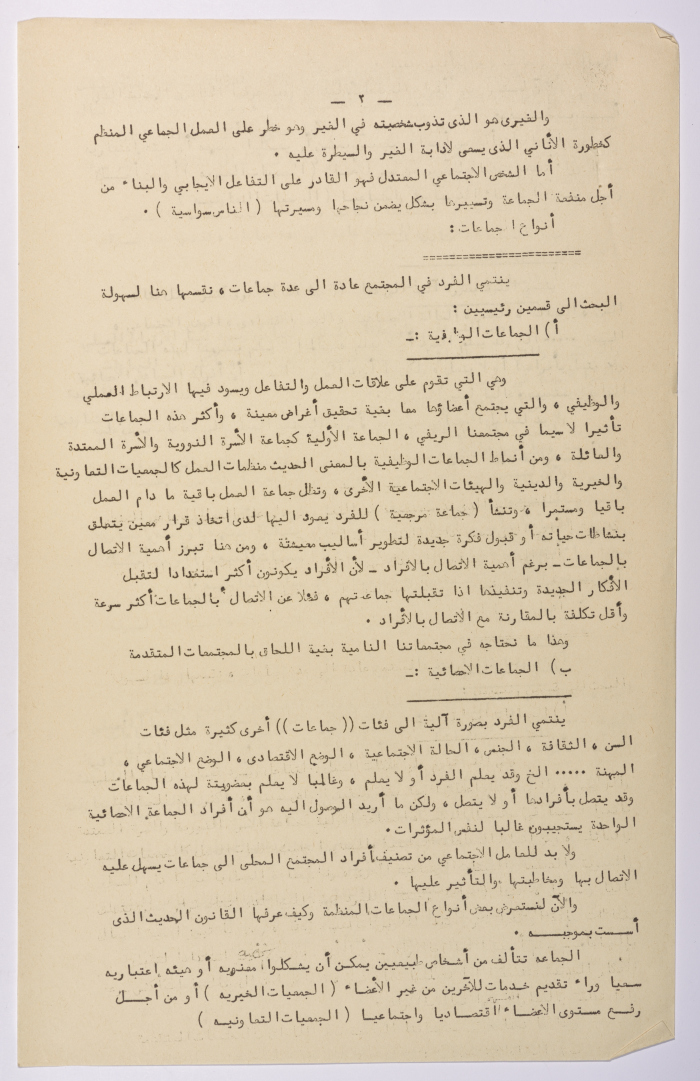 — ٢ —
والغيرى هو الذى تذوب شخصيته في الغير وهو خطر على العمل الجماعي المنظم
كخطورة الأناني الذى يسعى لاذابة الغير والسيطرة عليه .
أما الشخص الاجتماعي المعتدل فهو القادر على التفاعل الايجابي والبناء من
أجل منفعة الجماعة وتسييرها بشكل يضمن نجاحها ومسيرتها ( الناس سواسية ) .
أنواع ا جماعات :
ينتمي الفرد في المجتمع عادة الى عدة جماعات ، نقسمها هنا لسهولة
البحث الى قسمين رئيسيين :
أ ) الجماعات الوظيفية :ـ
وهي التي تقوم على علاقات العمل والتفاعل ويسود فيها الارتباط العملي
والوظيفي ، والتي يجتمع أعضاؤها معا بغية تحقيق أغراض معينة ، وأكثر هذه الجماعات
تأثيرا لا سيما في مجتمعنا الريفي ، الجماعة الأولية كجماعة الأسرة النووية والأسرة الممتدة
والعائلة ، ومن أنماط الجماعات الوظيفية بالمعنى الحديث منظمات العمل كالجمعيات التعاونية
والخيرية والدينية والهيئات الاجتماعية الأخرى ، وتظل جماعة العمل باقية ما دام العمل
باقيا ومستمرا ، وتنشأ ( جماعة مرجعية ) للفرد يعود اليها لدى اتخاذ قرار معين يتعلق
بنشاطات حياته أو قبول فكرة جديدة لتطوير أساليب معيشته ، ومن هنا تبرز أهمية الاتصال
بالجماعات ـ برغم أهمية الاتصال بالأفراد ـ لأن الأفراد يكونون أكثر استعدادا لتقبل
الأفكار الجديدة وتنفيذها اذا تقبلتها جماعتهم ، فضلا عن الاتصال بالجماعات أكثر سرعة
وأقل تكلفة بالمقارنة مع الاتصال بالأفراد .
وهذا ما نحتاجه في مجتمعاتنا النامية بغية اللحاق بالمجتمعات المتقدمة
ب ) الجماعات الاحصائية :ـ
ينتمي الفرد بصورة آلية الى فئات (( جماعات )) أخرى كثيرة مثل فئات
السن ، الثقافة ، الجنس ، الحالة الاجتماعية ، الوضع الاقتصادى ، الوضع الاجتماعي ،
المهنة ..... الخ وقد يعلم الفرد أو لا يعلم ، وغالبا لا يعلم بعضويته لهذه الجماعات
وقد يتصل بأفرادها أو لا يتصل ، ولكن ما أريد الوصول اليه هو أن أفراد الجماعة الاحصائية
الواحدة يستجيبون غالبا لنفس المؤثرات .
ولا بد للعامل الاجتماعي من تصنيف أفراد المجتمع المحلى الى جماعات يسهل عليه
الاتصال بها ومخاطبتها والتأثير عليها .
والآن لنستعرض بعض أنواع الجماعات المنظمة وكيف عرفها القانون الحديث الذى
أسست بموجبـــه .
الجماعه تتألف من أشخاص طبيعيين يمكن أن يشكلوا معنويه أو هيئه اعتباريه
سعيا وراء تقديم خدمات للآخرين من غير الأعضاء ( الجمعيات الخيريه ) أو من أجـــل
رفـع مستوى الاعضـاء اقتصاديا واجتماعيا ( الجمعيات التعاونيـه )